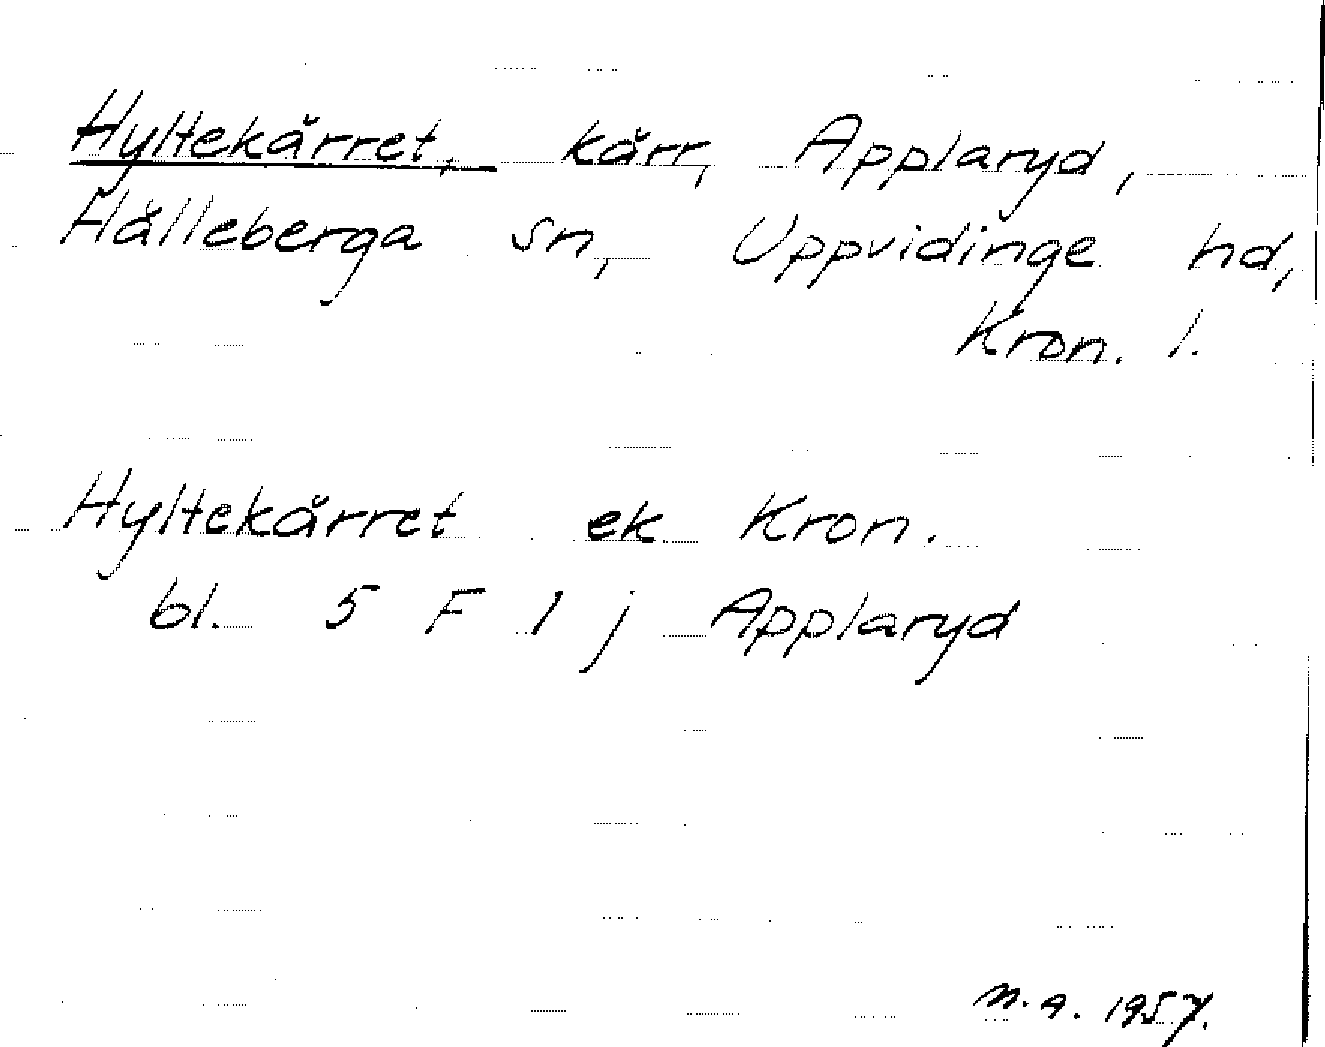 Hyltekärret, kärr, Applaryd,
Hälleberga sn, Uppvidinge hd,
Kron. l.
Hyltekärret ek Kron.
bl. 5 F 1 j Applaryd
n.a. 1957.